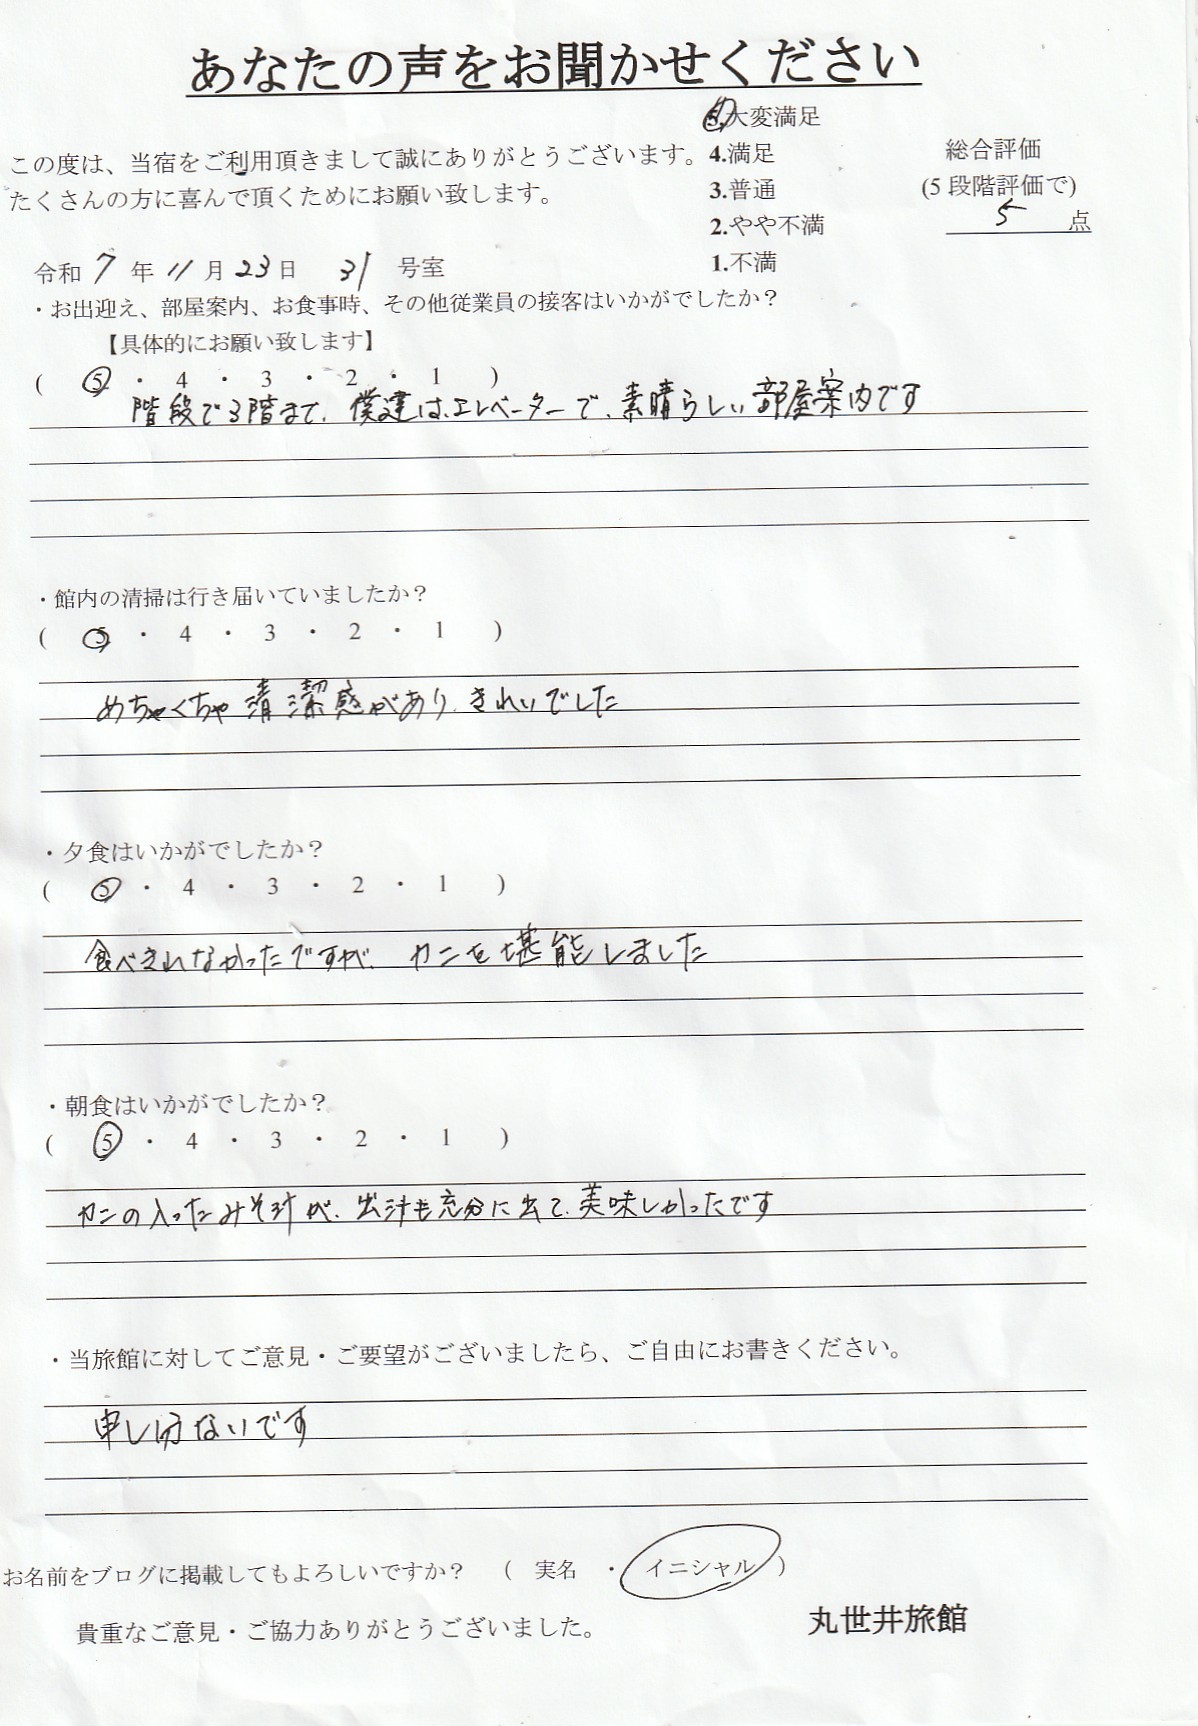 あなたの声をお聞かせください
5.大変満足
この度は、当宿をご利用頂きまして誠にありがとうございます。
4.満足
総合評価
たくさんの方に喜んで頂くためにお願い致します。
3.普通
(5段階評価で)
2.やや不満
5 点
令和 7 年 11 月 23 日 31 号室
1.不満
・お出迎え、部屋案内、お食事時、その他従業員の接客はいかがでしたか?
【具体的にお願い致します】
( 5 ・ 4 ・ 3 ・ 2 ・ 1 )
階段で3階まで、僕達は、エレベーターで、素晴らしい部屋案内です
・館内の清掃は行き届いていましたか?
( 5 ・ 4 ・ 3 ・ 2 ・ 1 )
めちゃくちゃ清潔感があり、きれいでした
・夕食はいかがでしたか?
( 5 ・ 4 ・ 3 ・ 2 ・ 1 )
食べきれなかったですが、カニを堪能しました
・朝食はいかがでしたか?
( 5 ・ 4 ・ 3 ・ 2 ・ 1 )
カニの入ったみそ汁が、出汁も充分に出て、美味しかったです
・当旅館に対してご意見・ご要望がございましたら、ご自由にお書きください。
申し分ないです
お名前をブログに掲載してもよろしいですか? ( 実名 ・ イニシャル )
貴重なご意見・ご協力ありがとうございました。
丸世井旅館